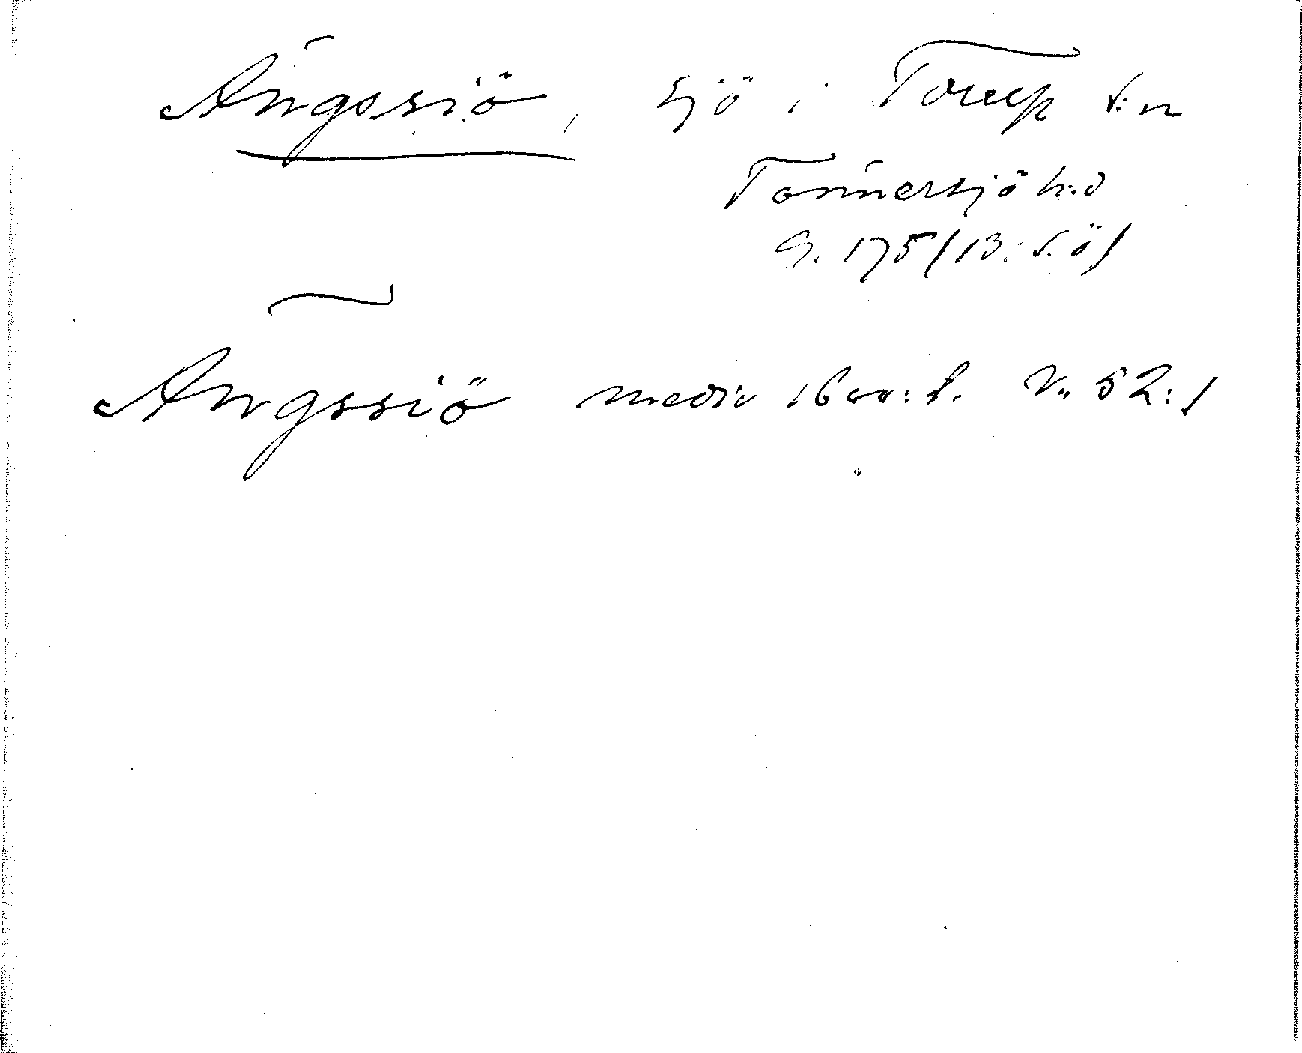 Ängssiö, sjö i Torup s:n
Tönnersjö h:d
G. 175 (13. S.ö)
Ängssiö medio 1600:t. V. 52:1